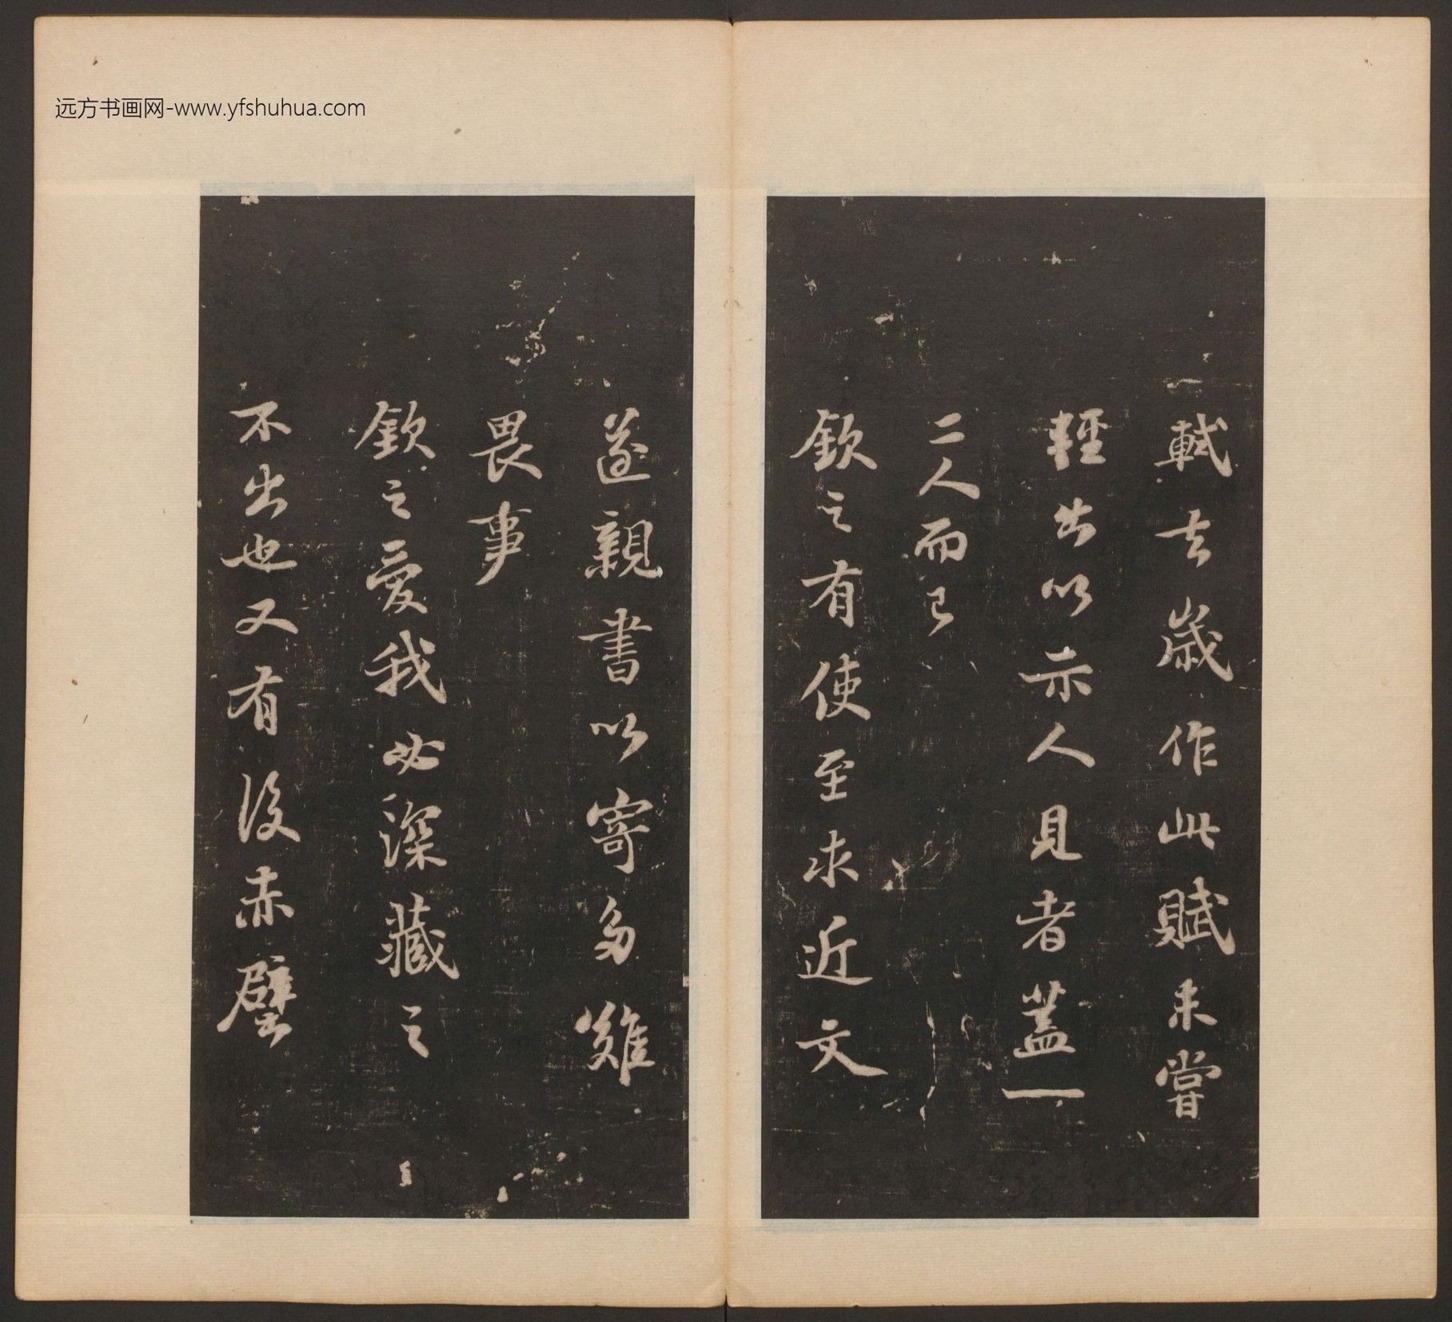 远方书画网-www.yfshuhua.com
軾去歲作此賦未嘗
輕出以示人見者蓋一
二人而已
欽之有使至求近文
遂親書以寄多難
畏事
欽之愛我必深藏之
不出也又有後赤壁